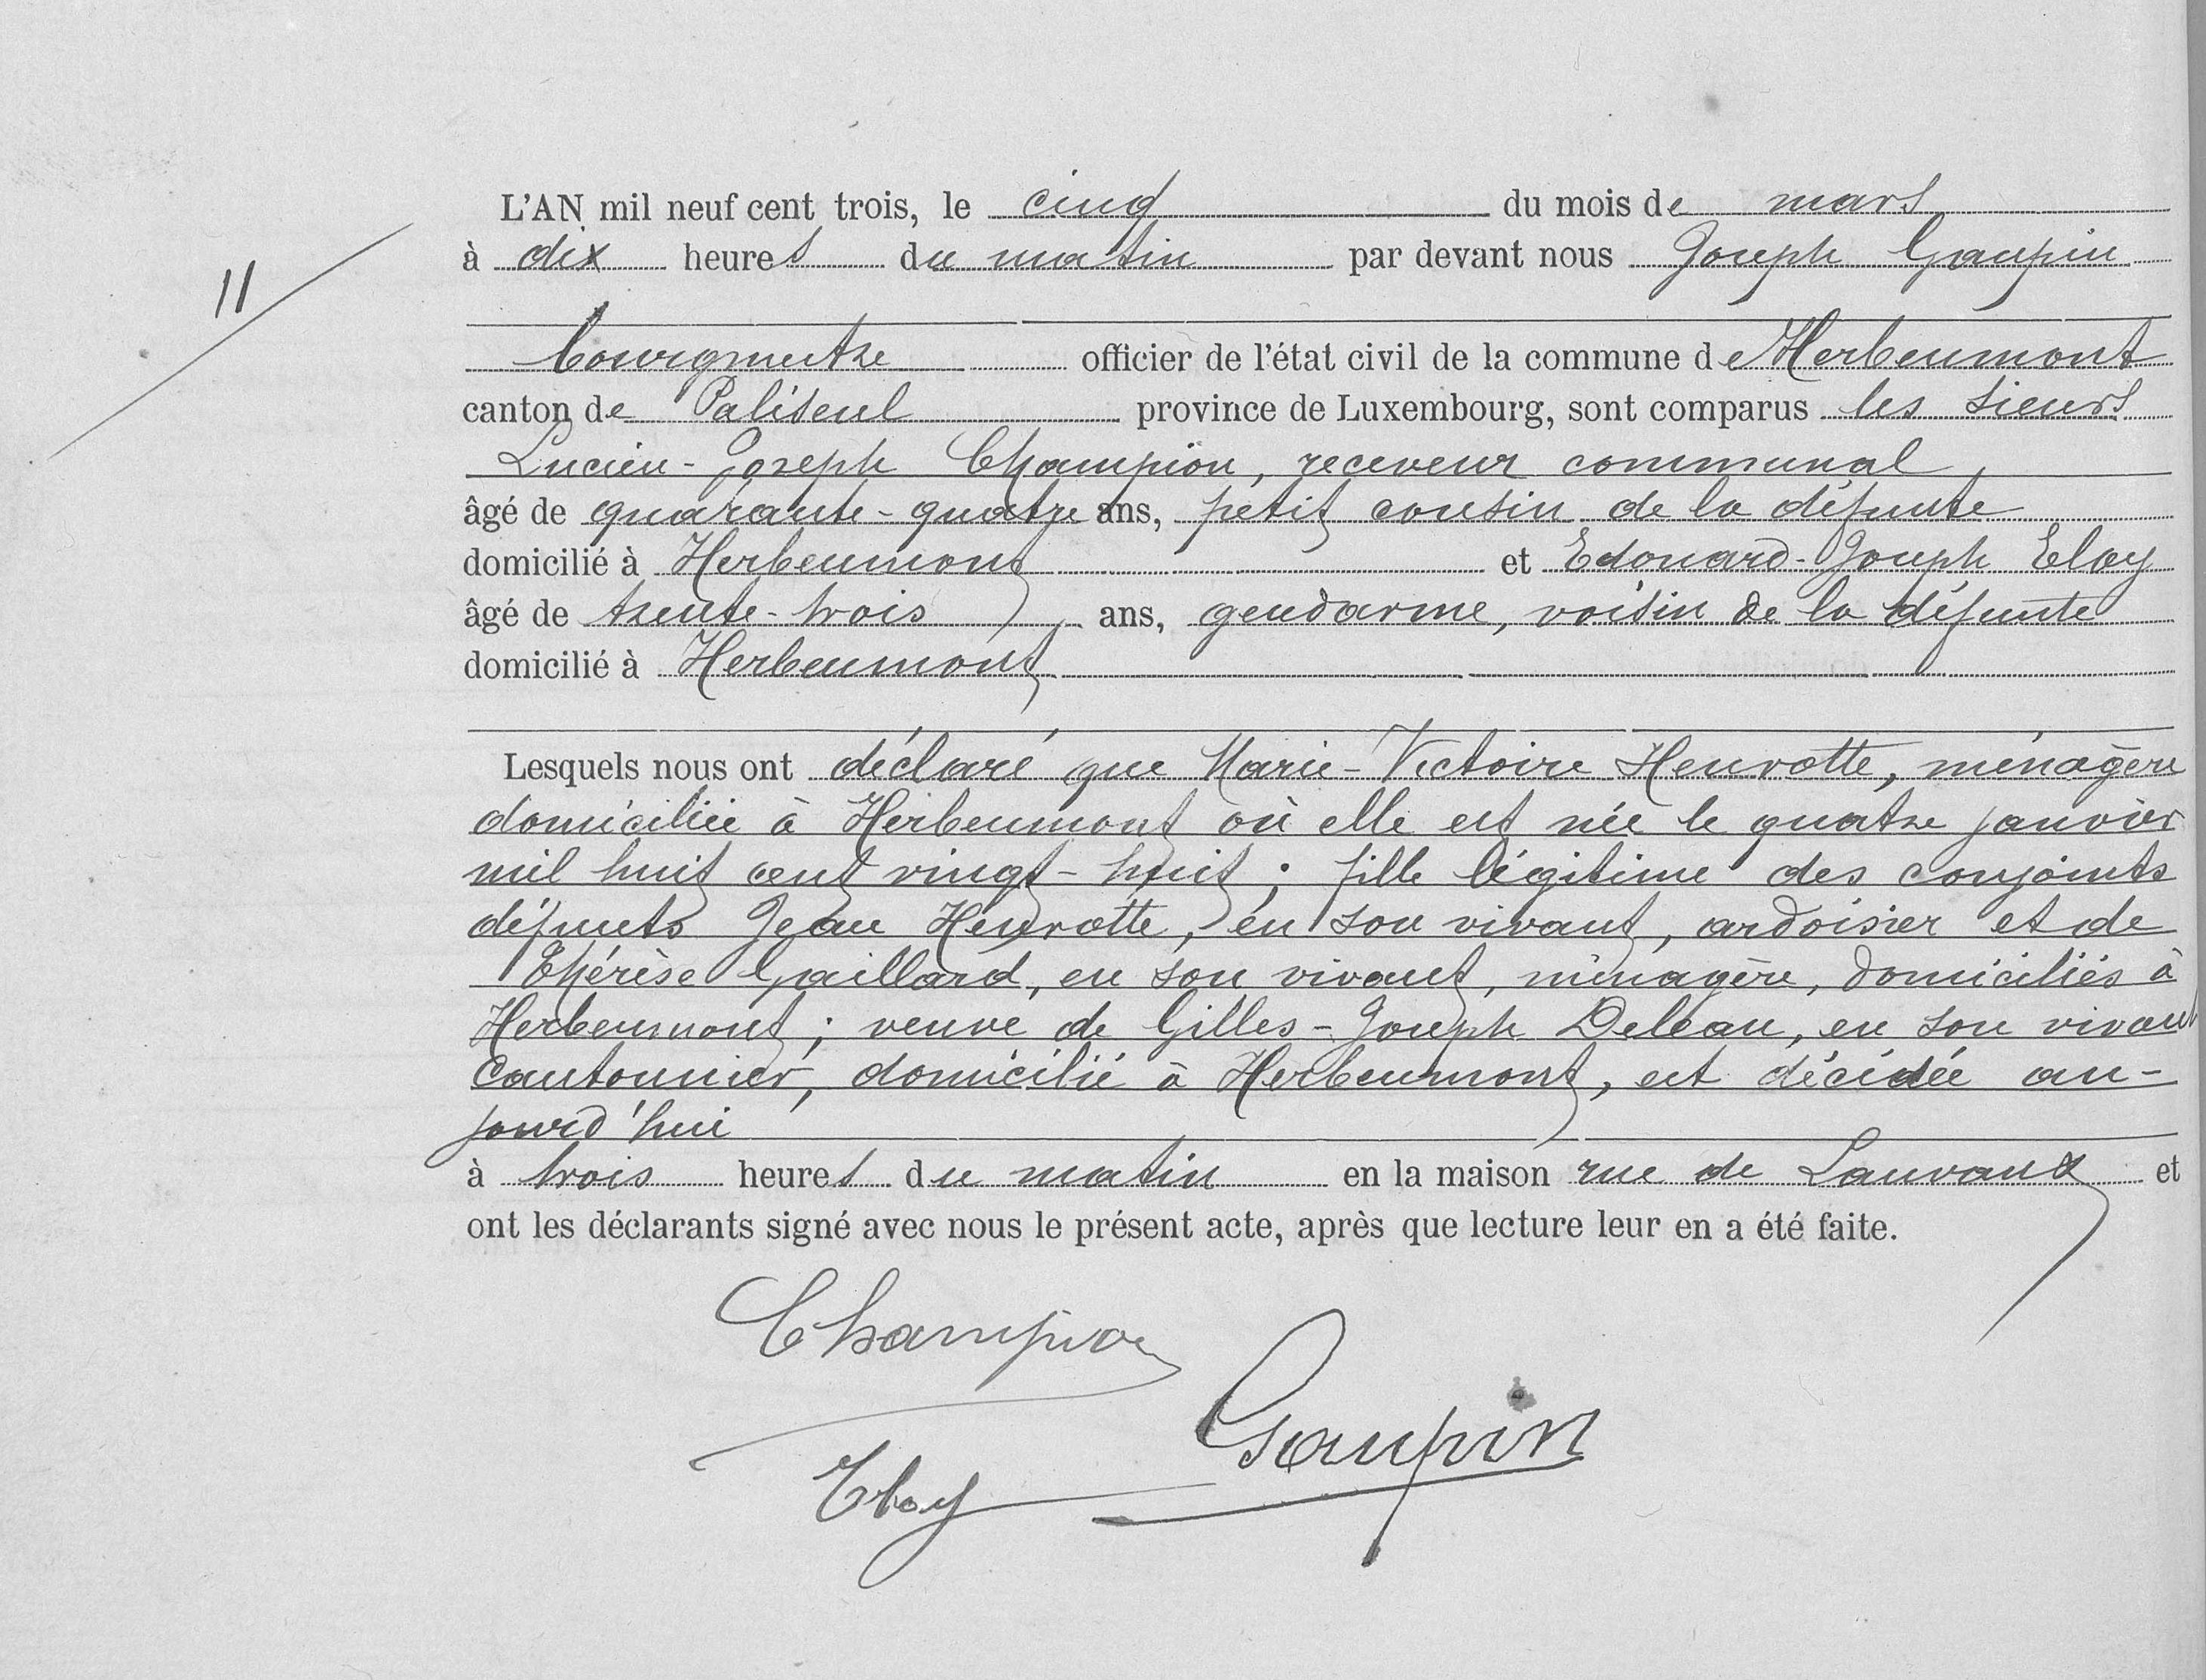 11
L'AN mil neuf cent trois, le cinq du mois de mars
à dix heures du matin par devant nous Joseph Gaupin
bourgmestre officier de l'état civil de la commune de Herbeumont
canton de Paliseul province de Luxembourg, sont comparus les sieurs
Lucien-Joseph Champion, receveur communal,
âgé de quarante-quatre ans, petit cousin de la défunte
domicilié à Herbeumont et Edouard-Joseph Eloy
âgé de trente-trois ans, gendarme, voisin de la défunte
domicilié à Herbeumont
Lesquels nous ont déclaré que Marie-Victoire Henrotte, ménagère
domiciliée à Herbeumont où elle est née le quatre janvier
mil huit cent vingt-huit; fille légitime des conjoints
défunts Jean Henrotte, en son vivant, ardoisier et de
Thérèse Gaillard, en son vivant, ménagère, domiciliés à
Herbeumont; veuve de Gilles-Joseph Deleau, en son vivant
cantonnier, domicilié à Herbeumont, est décédée au-
jourd'hui
à trois heures du matin en la maison rue de Lauvaux et
ont les déclarants signé avec nous le présent acte, après que lecture leur en a été faite.
Champion
Gaupin
Eloy